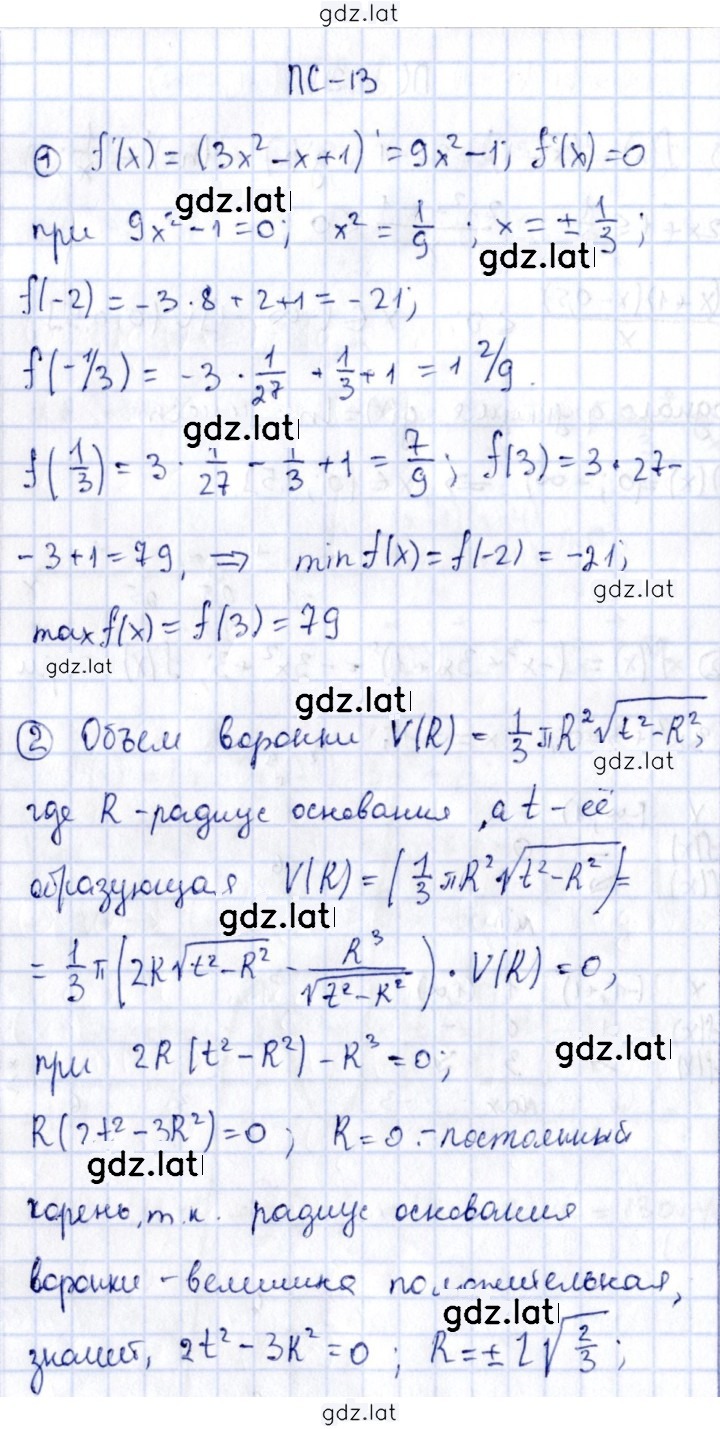 gdz.lat
ПС-13
① f'(x) = (3x² - x + 1)' = 9x² - 1; f'(x) = 0
gdz.lat
при 9x² - 1 = 0; x² = 1/9 ; x = ± 1/3 ;
gdz.lat
f(-2) = -3 · 8 + 2 + 1 = -21;
f(-1/3) = -3 · 1/27 + 1/3 + 1 = 1 2/9.
gdz.lat
f(1/3) = 3 · 1/27 - 1/3 + 1 = 7/9; f(3) = 3 · 27 -
- 3 + 1 = 79, ⇒ min f(x) = f(-2) = -21;
gdz.lat
max f(x) = f(3) = 79
gdz.lat
gdz.lat
② Объем воронки V(R) = 1/3 πR²√(t² - R²),
gdz.lat
где R - радиус основания, а t - её
образующая V(R) = (1/3 πR²√(t² - R²))' =
gdz.lat
= 1/3 π(2R√(t² - R²) - R³/√(t² - R²)) · V(R) = 0,
при 2R(t² - R²) - R³ = 0;
gdz.lat
R(2t² - 3R²) = 0 ; R = 0 - постоянный
gdz.lat
корень, т.к. радиус основания
воронки - величина положительная,
gdz.lat
значит, 2t² - 3R² = 0 ; R = ± l√(2/3) ;
gdz.lat